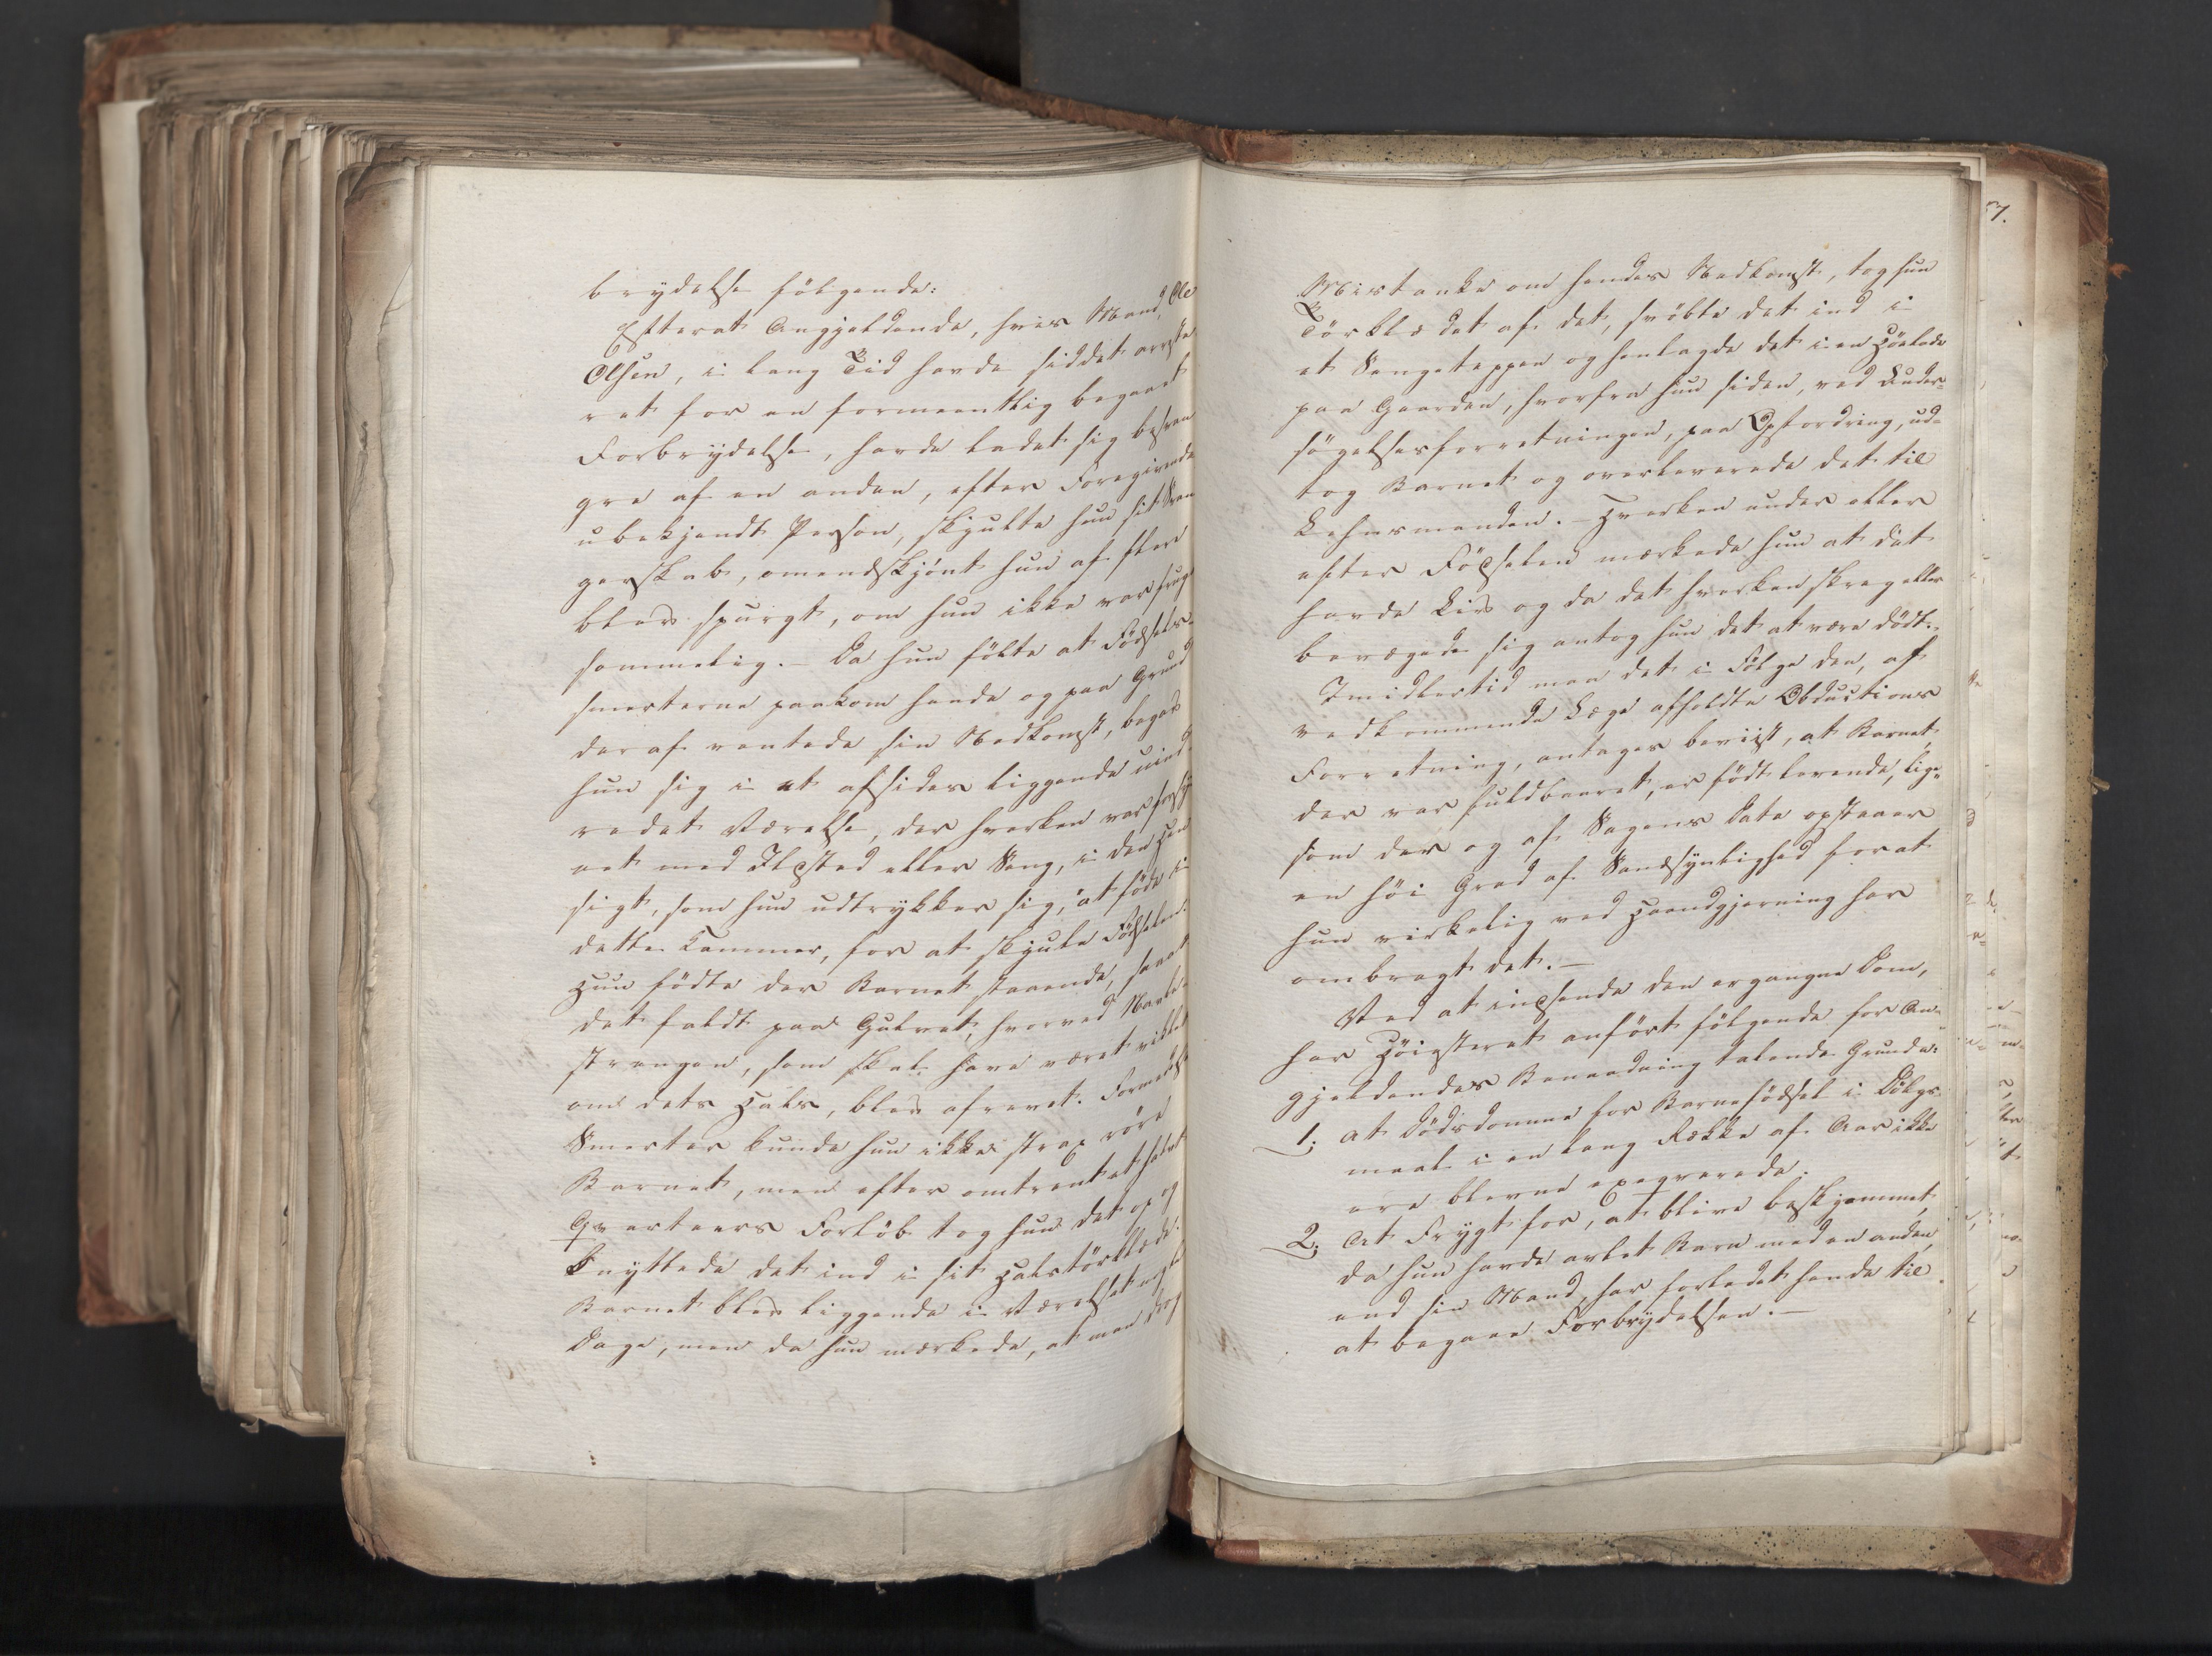 brydelse følgende:
Efterat Angjeldende, hvis Mand, Ole
Olsen, i lang Tid havde siddet arreste
ret for en formeentlig begaaet
Forbrydelse, havde ladet sig besvan
gre af en anden, efter Foregivende
ubekjendt Person, skjulte hun sit Svan
gerskab, omendskjønt hun af flere
blev spurgt, om hun ikke var frugt
sommelig. – Da hun følte at Fødsels-
smerterne paakom hende og paa Grund
deraf ventede sin Nedkomst, begav
hun sig i et afsides liggende uind-
redet Værelse, der hverken var forsy
net med Ildsted eller Seng, i den Hen
sigt, som hun udtrykker sig, at føde i
dette Kammer, for at skjule Fødselen.
Hun fødte der Barnet staaende, saa at
det faldt paa Gulvet, hvorved Navle-
strengen, som skal have været viklet
om dets Hals, blev afrevet. Formedelst
Smerter kunde hun ikke strax røre
Barnet, men efter omtrent et halvt
Qvarteers Forløb tog hun det op og
knyttede det ind i sit Halstørklæde.
Barnet blev liggende i Værelset nogle
Dage, men da hun mærkede, at man drog
57.
Mistanke om hendes Nedkomst, tog hun
Tørklædet af det, svøbte det ind i
et Sengeteppen og henlagde det i en Høelade
paa Gaarden, hvorfra hun siden, ved Under-
søgelsesforretningen, paa Opfordring, ud-
tog Barnet og overleverede det til
Lehnsmanden. – Hverken under eller
efter Fødselen mærkede hun at det
havde Liv og da det hverken skreg eller
bevægede sig antog hun det at være dødt. –
Imidlertid maa det i Følge den, af
vedkommende Læge afholdte Obductions
Forretning, antages beviist, at Barnet,
der var fuldbaaret, er født levende, lige-
som der og af Sagens Data opstaaer
en høi Grad af Sandsynlighed for at
hun virkelig ved Haandgjerning har
ombragt det. –
Ved at indsende den ergangne Dom,
har Høiesteret anført følgende for An-
gjeldendes Benaadning talende Grunde:
1. at Dødsdomme for Barnefødsel i Dølgs-
maal i en lang Række af Aar ikke
ere blevne exeqverede.
2. At Frygt for, at blive beskjæmmet,
da hun havde avlet Barn med en anden
end sin Mand, har forledet hende til
at begaae Forbrydelsen. –